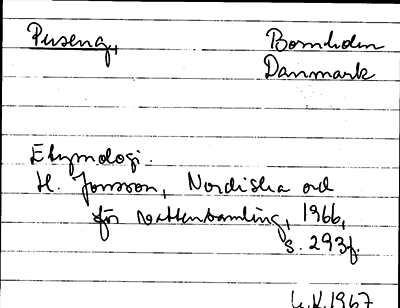 Puseng, Bornholm
Danmark
Etymologi.
H. Jonsson, Nordiska ord
för vattensamling, 1966,
s. 293f.
U.K. 1967